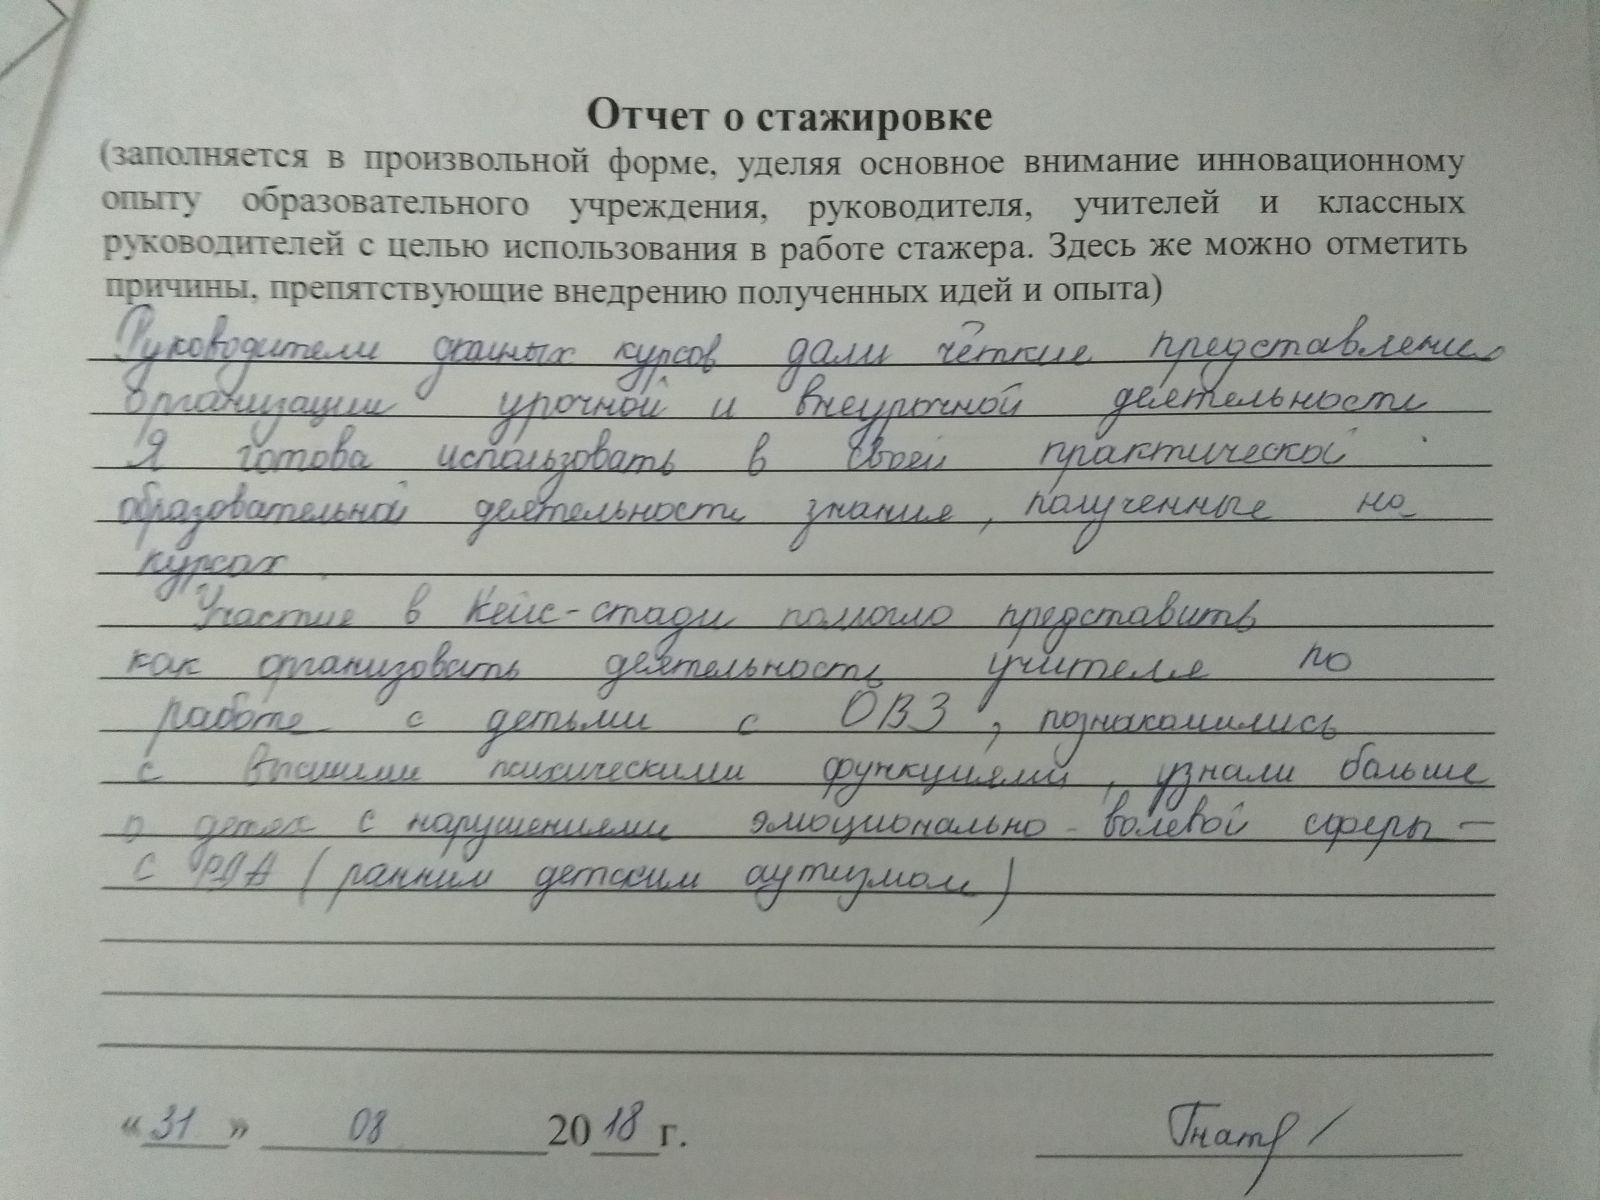 Отчет о стажировке
(заполняется в произвольной форме, уделяя основное внимание инновационному
опыту образовательного учреждения, руководителя, учителей и классных
руководителей с целью использования в работе стажера. Здесь же можно отметить
причины, препятствующие внедрению полученных идей и опыта)
Руководители данных курсов дали чёткие представление
организации урочной и внеурочной деятельности
Я готова использовать в своей практической
образовательной деятельности знания, полученные на
курсах.
Участие в Кейс-стади помогло представить
как организовать деятельность учителя по
работе с детьми с ОВЗ, познакомились
с высшими психическими функциями, узнали больше
о детях с нарушениями эмоционально-волевой сферы –
с РДА (ранним детским аутизмом)
«31» 08 2018 г.